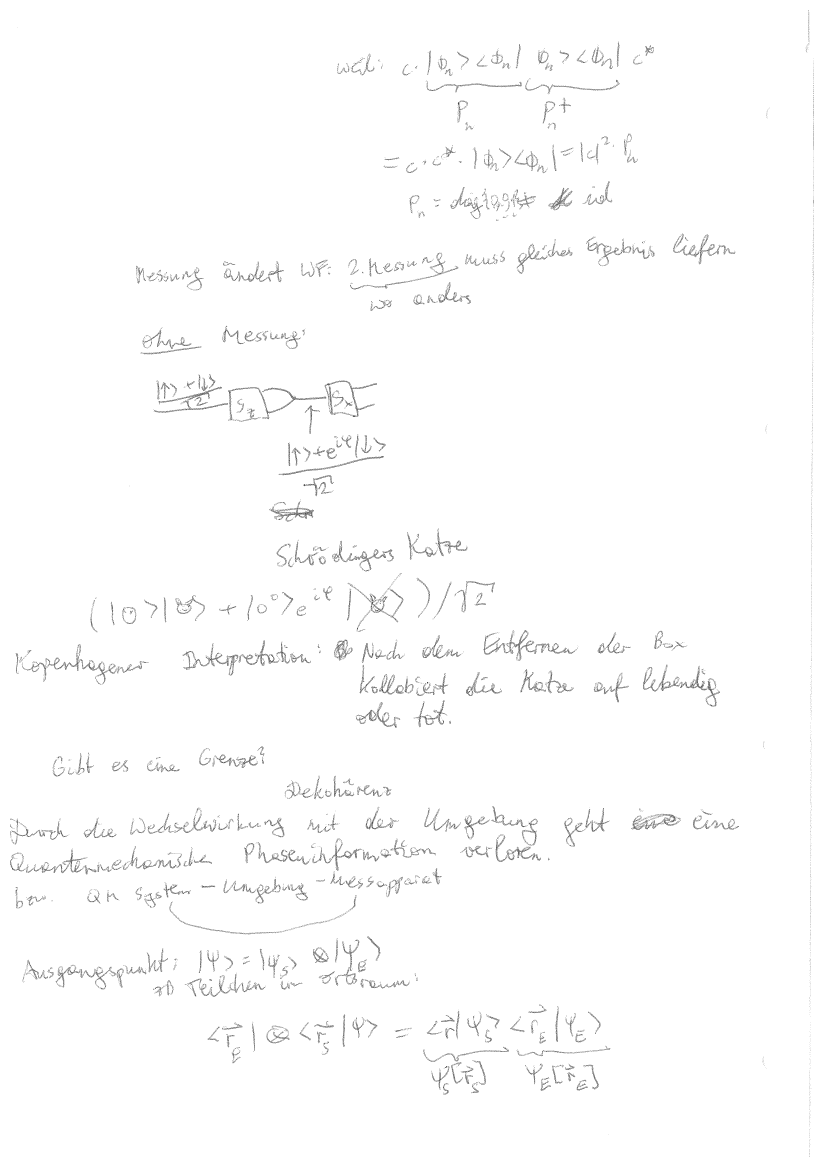 weil: c·|Φ_n><Φ_n| Φ_n><Φ_n| c*
P_n P_n^+
= c·c*·|Φ_n><Φ_n| = |c|²·P_n
P_n = id
Messung ändert WF: 2. Messung muss gleiches Ergebnis liefern
wo anders
ohne Messung:
|↑>+|↓>
√2
S_z S_x
|↑>+e^{iφ}|↓>
√2
Schrödingers Katze
+ e^{iφ} )/√2
Kopenhagener Interpretation: Nach dem Entfernen der Box
Kollabiert die Katze auf lebendig
oder tot.
Gibt es eine Grenze?
Dekohärenz
Durch die Wechselwirkung mit der Umgebung geht eine
Quantenmechanische Phaseninformation verloren.
bzw. QM System – Umgebung – Messapparat
Ausgangspunkt: |Ψ> = |Ψ_S> ⊗ |Ψ_E>
Teilchen im Ortsraum:
<r⃗_E| ⊗ <r⃗_S|Ψ> = <r⃗|Ψ_S> <r⃗_E|Ψ_E>
Ψ_S[r⃗_S] Ψ_E[r⃗_E]